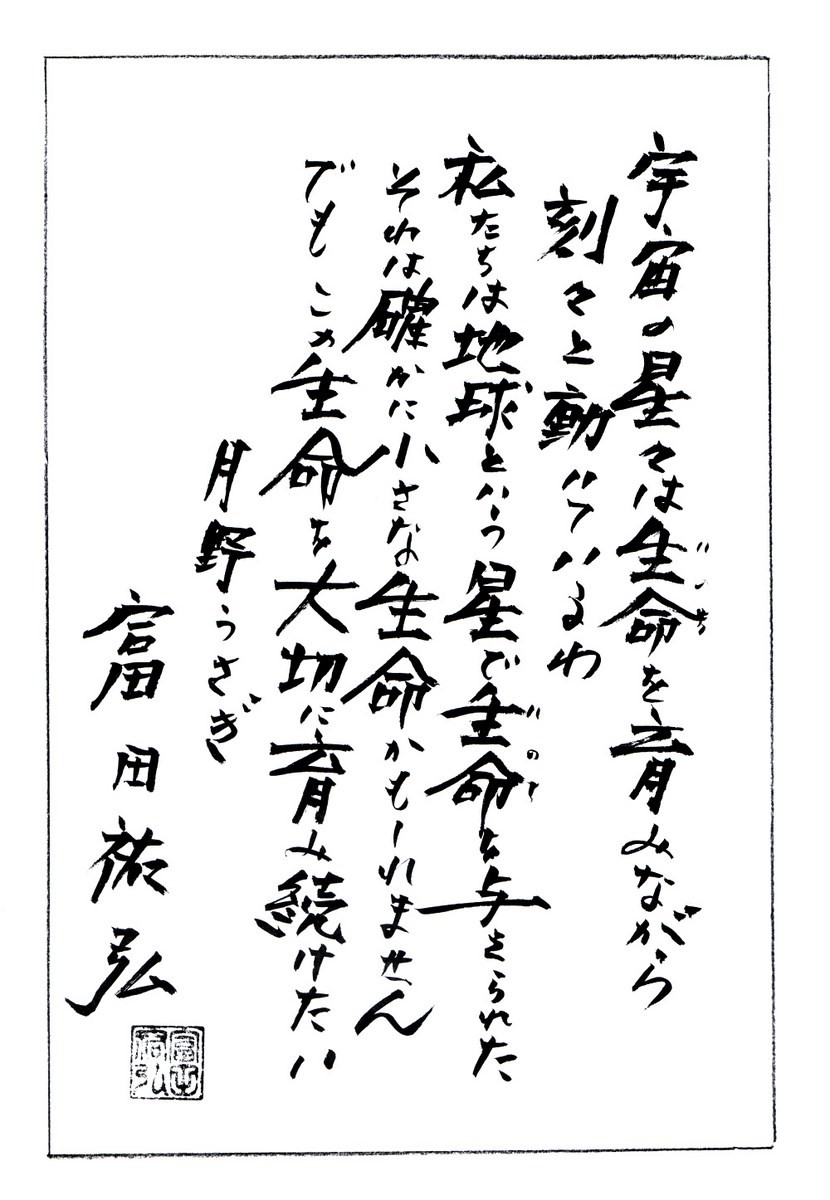 宇宙の星々は生命を育みながら
刻々と動いているわ
私たちは地球という星で生命を与えられた
それは確かに小さな生命かもしれません
でも この生命を大切に育み続けたい
月野うさぎ
富田祐弘